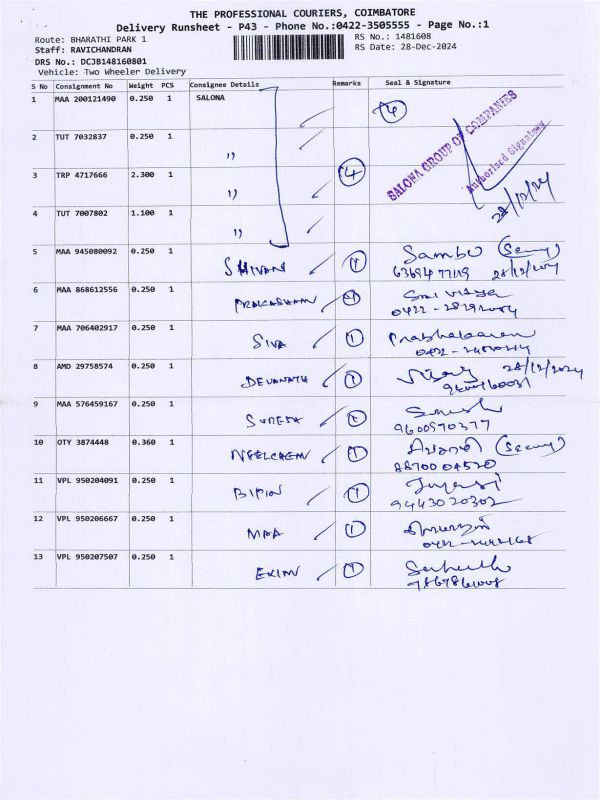 THE PROFESSIONAL COURIERS, COIMBATORE
Delivery Runsheet - P43 - Phone No.:0422-3505555 - Page No.:1
Route: BHARATHI PARK 1
RS No.: 1481608
Staff: RAVICHANDRAN
RS Date: 28-Dec-2024
DRS No.: DCJB148160801
Vehicle: Two Wheeler Delivery
S No Consignment No Weight PCS Consignee Details Remarks Seal & Signature
1 MAA 200121490 0.250 1 SALONA 4
SALONA GROUP OF COMPANIES
Authorised Signatory
28/12/24
2 TUT 7032837 0.250 1 ,,
3 TRP 4717666 2.300 1 ,, 4
4 TUT 7007802 1.100 1 ,,
5 MAA 945080092 0.250 1 SHIVAN 1 Sambu
28/12/2024
6 MAA 868612556 0.250 1 PRAKASHAM 1
7 MAA 706402917 0.250 1 SIVA 1 Prabhakaran
8 AMD 29758574 0.250 1 DEVANATH 1 28/12/2024
9 MAA 576459167 0.250 1 SURESH 1 Suresh
9600570377
10 OTY 3874448 0.360 1 1
8870004520
11 VPL 950204091 0.250 1 BIPIN 1
9443020302
12 VPL 950206667 0.250 1 MAA 1
13 VPL 950207507 0.250 1 EXIM 1